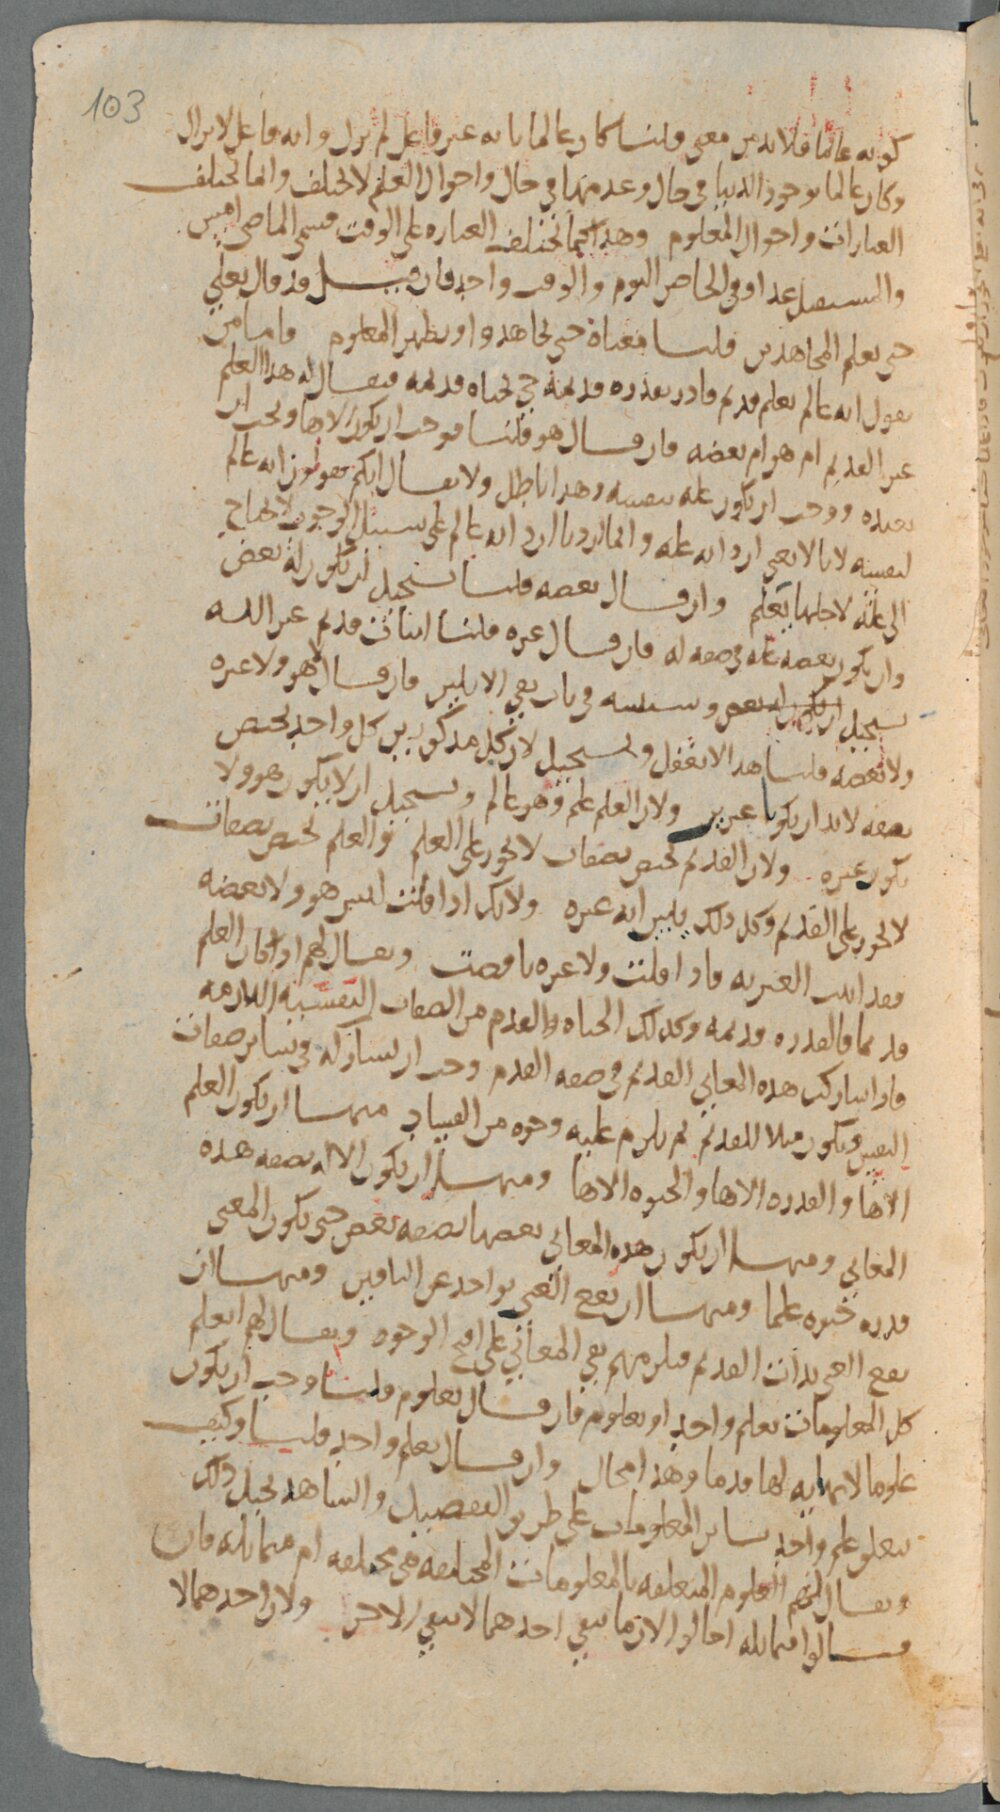 103
كونه عالما فلا بد من معنى قلنا كان عالما بانه غير فاعل لم يزل وانه فاعل لا يزال
وكان عالما بوجود الدنيا في حال وعدمها في حال واحوال العلم لا تختلف وانما تختلف
العبارات واحوال المعلوم وهذا كما تختلف العبارة على الوقت فيسمى الماضي امس
والمستقبل غدا وفي الحاضر اليوم والوقت واحد فان قيل قد قال تعالى
حتى نعلم المجاهدين قلنا معناه حتى تجاهدوا او يظهر المعلوم واما من
يقول انه عالم بعلم قديم قادر بقدرة قديمة حي بحياة قديمة فيقال له هذا العلم
غير القديم ام هو ام بعضه فان قال هو قلنا فوجب ان يكون الاها ويجب ان
نعبده ووجب ان يكون علم بنفسه وهذا باطل ولا يقال انكم تقولون انه عالم
لنفسه لانا لا نعني ان ذاته علم وانما اردنا ان ذاته عالم على سبيل الوجوب لا يحتاج
الى علة لاجلها يعلم وان قال بعضه قلنا يستحيل ان يكون له بعض
وان يكون بعضه علم وصفة له فان قال غيره قلنا اثبات قديم غير الله
يستحيل وسنبينه في باب نفي الاثنين فان قال لا هو ولا غيره
ولا بعضه قلنا هذا لا يعقل ويستحيل لان كل مذكورين كل واحد يختص
بصفة لا بد ان يكونا غيرين ولان العلم علم وهو عالم ويستحيل ان لا يكون هو ولا
يكون غيره ولان القديم يختص بصفات لا تجوز على العلم والعلم يختص بصفات
لا تجوز على القديم وكل ذلك يبين انه غيره ولانك اذا قلت ليس هو ولا بعضه
فقد اثبت الغيرية فاذا قلت ولا غيره ناقضت ويقال لهم اذا كان العلم
قديما والقدرة قديمة وكذلك الحياة والقدم من الصفات النفسية اللازمة
فاذا شاركت هذه المعاني القديم في صفة القدم وجب ان يشاركه في سائر صفات
النفس ويكون مثلا للقديم ثم يلزم عليه وجوه من الفساد منها ان يكون العلم
الاها والقدرة الاها والحيوة الاها ومنها ان يكون الاله بصفة هذه
المعاني ومنها ان يكون هذه المعاني بعضها بصفة بعض حتى يكون المعنى
قدرة حيوة علما ومنها ان يقع الغنى بواحد عن الباقين ومنها ان
يقع الغنى بذات القديم فيلزمهم نفي المعاني على اقبح الوجوه ويقال لهم ايعلم
كل المعلومات بعلم واحد او بعلوم فان قال بعلوم قلنا وجب ان يكون
علوما لا نهاية لها قدما وهذا محال وان قال بعلم واحد قلنا وكيف
يتعلق علم واحد بسائر المعلومات على طريق التفصيل والشاهد يحيل ذلك
ويقال لهم العلوم المتعلقة بالمعلومات المختلفة هي مختلفة ام متماثلة فان
قالوا متماثلة احالوا لان ما ينفي احدهما لا ينفي الاخر ولان احدهما لا